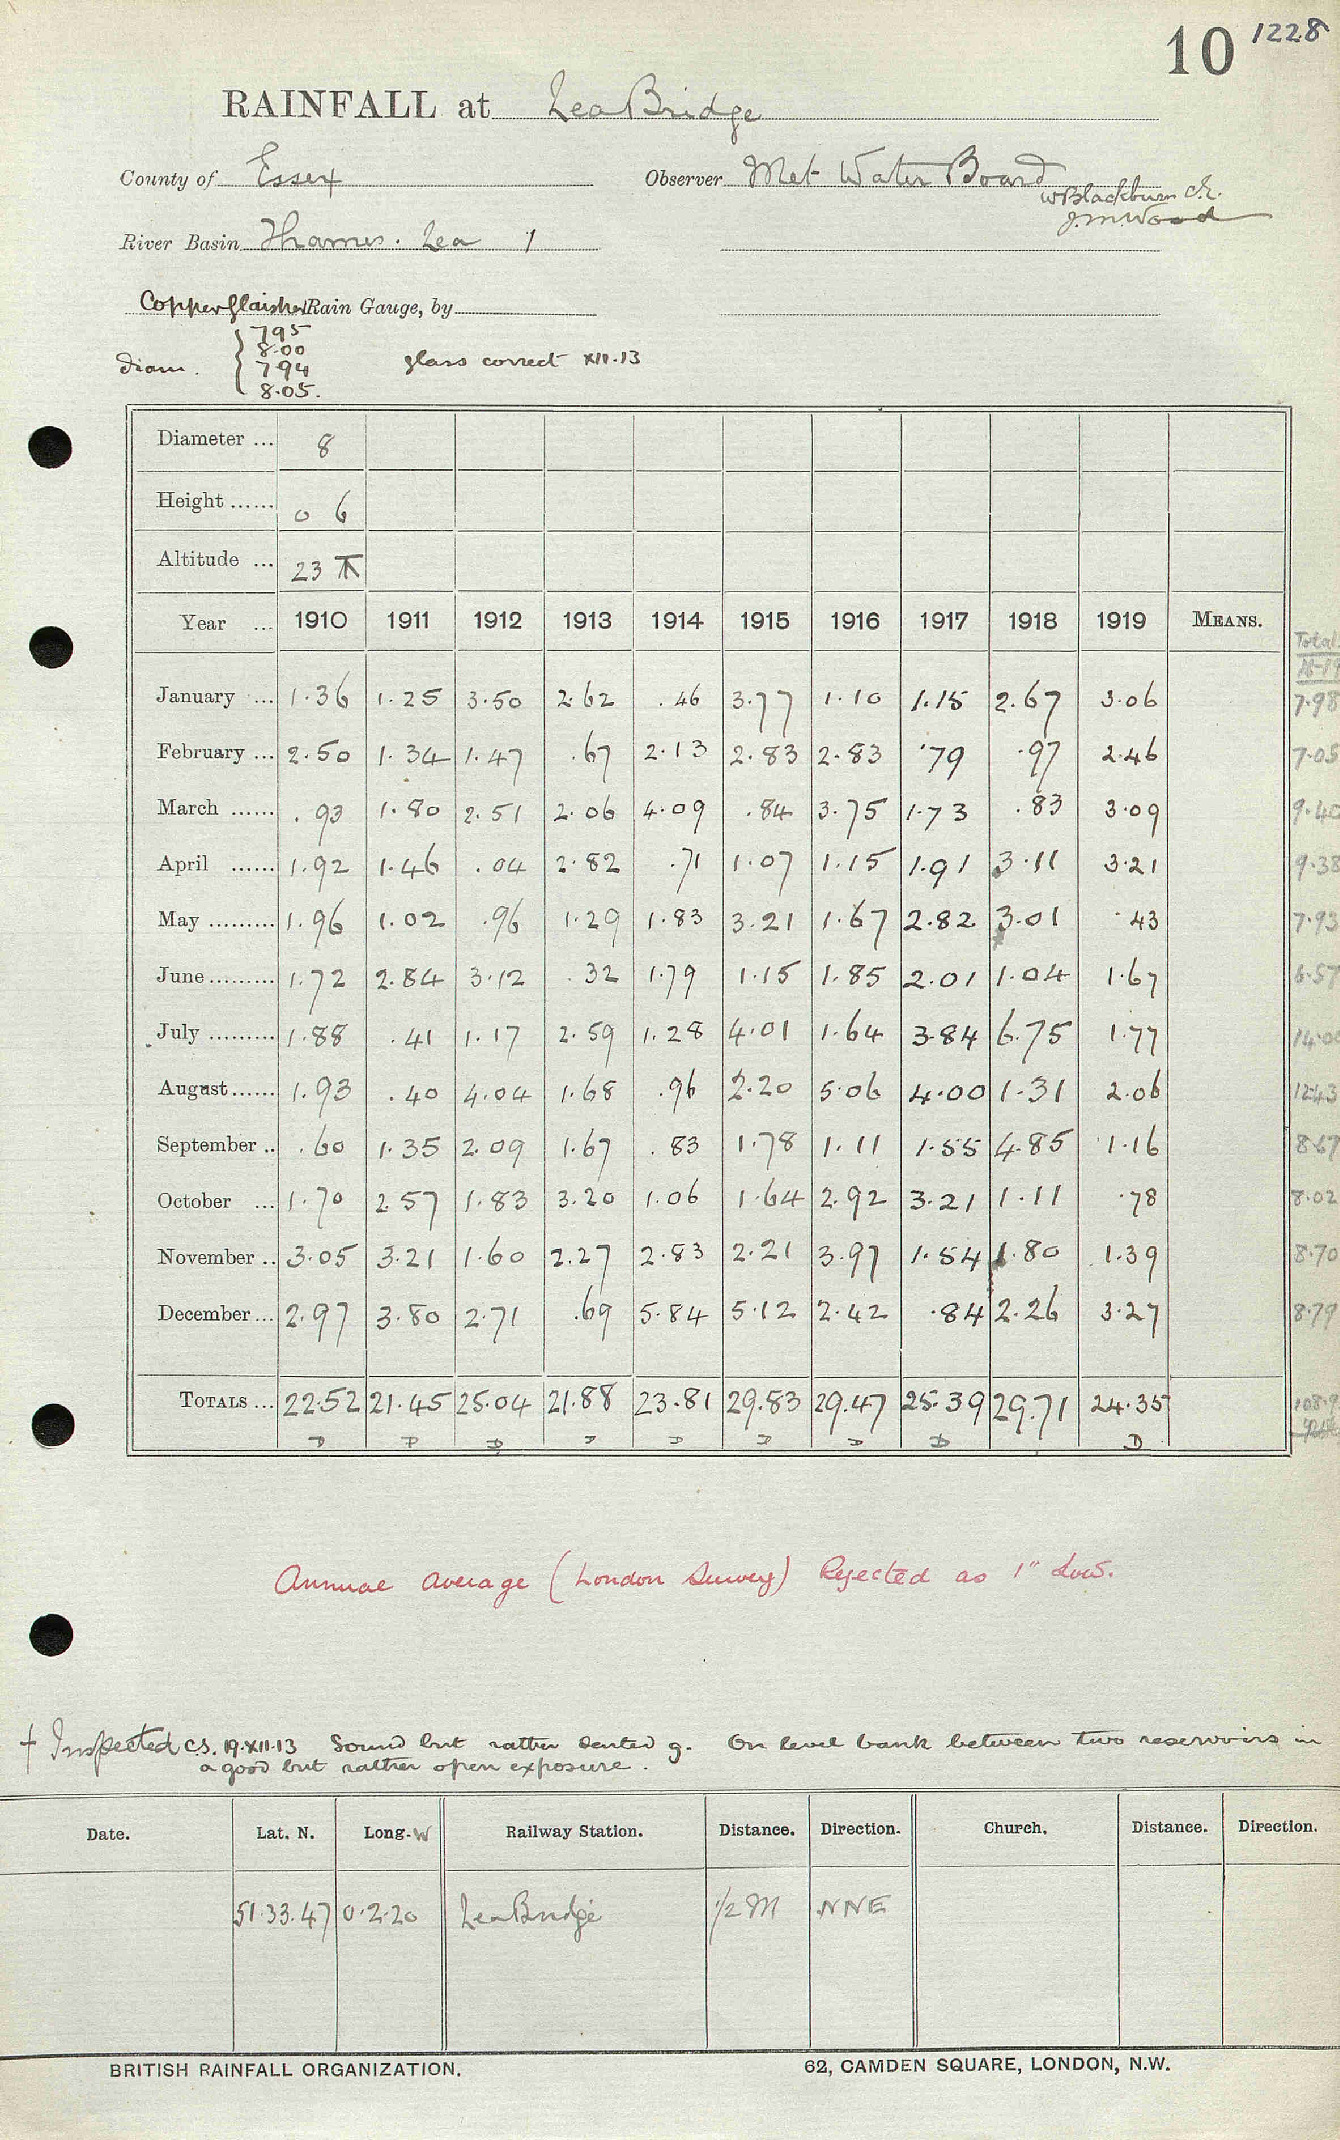 10 1228
RAINFALL at Lea Bridge
County of Essex Observer Met Water Board
W Blackburn C.E.
J.M. Wood
River Basin Thames. Lea 1
Copper Glaisher Rain Gauge, by
diam. { 7.95
8.00
7.94
8.05.
glass correct XII.13
Diameter ... 8
Height ...... 0 6
Altitude ... 23
Year ... 1910 1911 1912 1913 1914 1915 1916 1917 1918 1919 MEANS. Total
16-19
January ... 1.36 1.25 3.50 2.62 .46 3.77 1.10 1.15 2.67 3.06 7.98
February ... 2.50 1.34 1.47 .67 2.13 2.83 2.83 .79 .97 2.46 7.05
March ...... .93 1.80 2.51 2.06 4.09 .84 3.75 1.73 .83 3.09 9.40
April ...... 1.92 1.46 .04 2.82 .71 1.07 1.15 1.91 3.11 3.21 9.38
May ......... 1.96 1.02 .96 1.29 1.83 3.21 1.67 2.82 3.01 .43 7.93
June ......... 1.72 2.84 3.12 .32 1.79 1.15 1.85 2.01 1.04 1.67 6.57
July ......... 1.88 .41 1.17 2.59 1.28 4.01 1.64 3.84 6.75 1.77 14.00
August ...... 1.93 .40 4.04 1.68 .96 2.20 5.06 4.00 1.31 2.06 12.43
September .. .60 1.35 2.09 1.67 .83 1.78 1.11 1.55 4.85 1.16 8.67
October ... 1.70 2.57 1.83 3.20 1.06 1.64 2.92 3.21 1.11 .78 8.02
November .. 3.05 3.21 1.60 2.27 2.83 2.21 3.97 1.54 1.80 1.39 8.70
December ... 2.97 3.80 2.71 .69 5.84 5.12 2.42 .84 2.26 3.27 8.79
TOTALS ... 22.52 21.45 25.04 21.88 23.81 29.83 29.47 25.39 29.71 24.35 108.9
D D D D D D D D D
Annual average (London Survey) Rejected as 1" low.
† Inspected C.S. 19.XII.13 Sound but rather dented g. On level bank between two reservoirs in
a good but rather open exposure.
Date. Lat. N. Long. W Railway Station. Distance. Direction. Church. Distance. Direction.
51.33.47 0.2.20 Lea Bridge 1/2 M NNE
BRITISH RAINFALL ORGANIZATION. 62, CAMDEN SQUARE, LONDON, N.W.